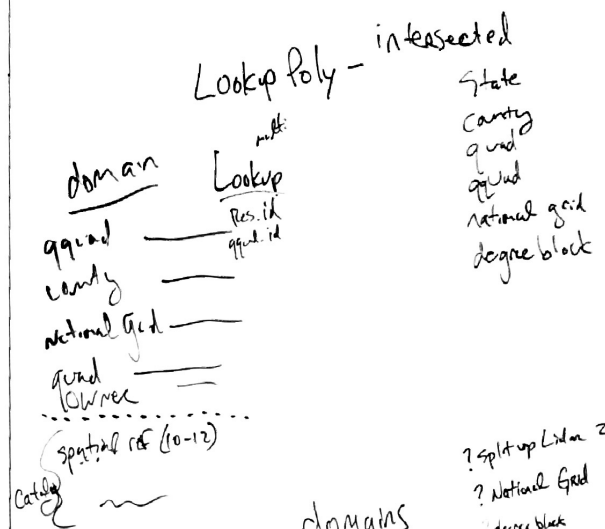 Lookup Poly - intersected
State
County
quad
qquad
national grid
degree block
multi
domain
Lookup
Res. id
qqud. id
qquad
county
National Grid
quad
OWNER
spatial ref (10-12)
Catalog
? Split up Lidar ?
? National Grid
degree block
domains